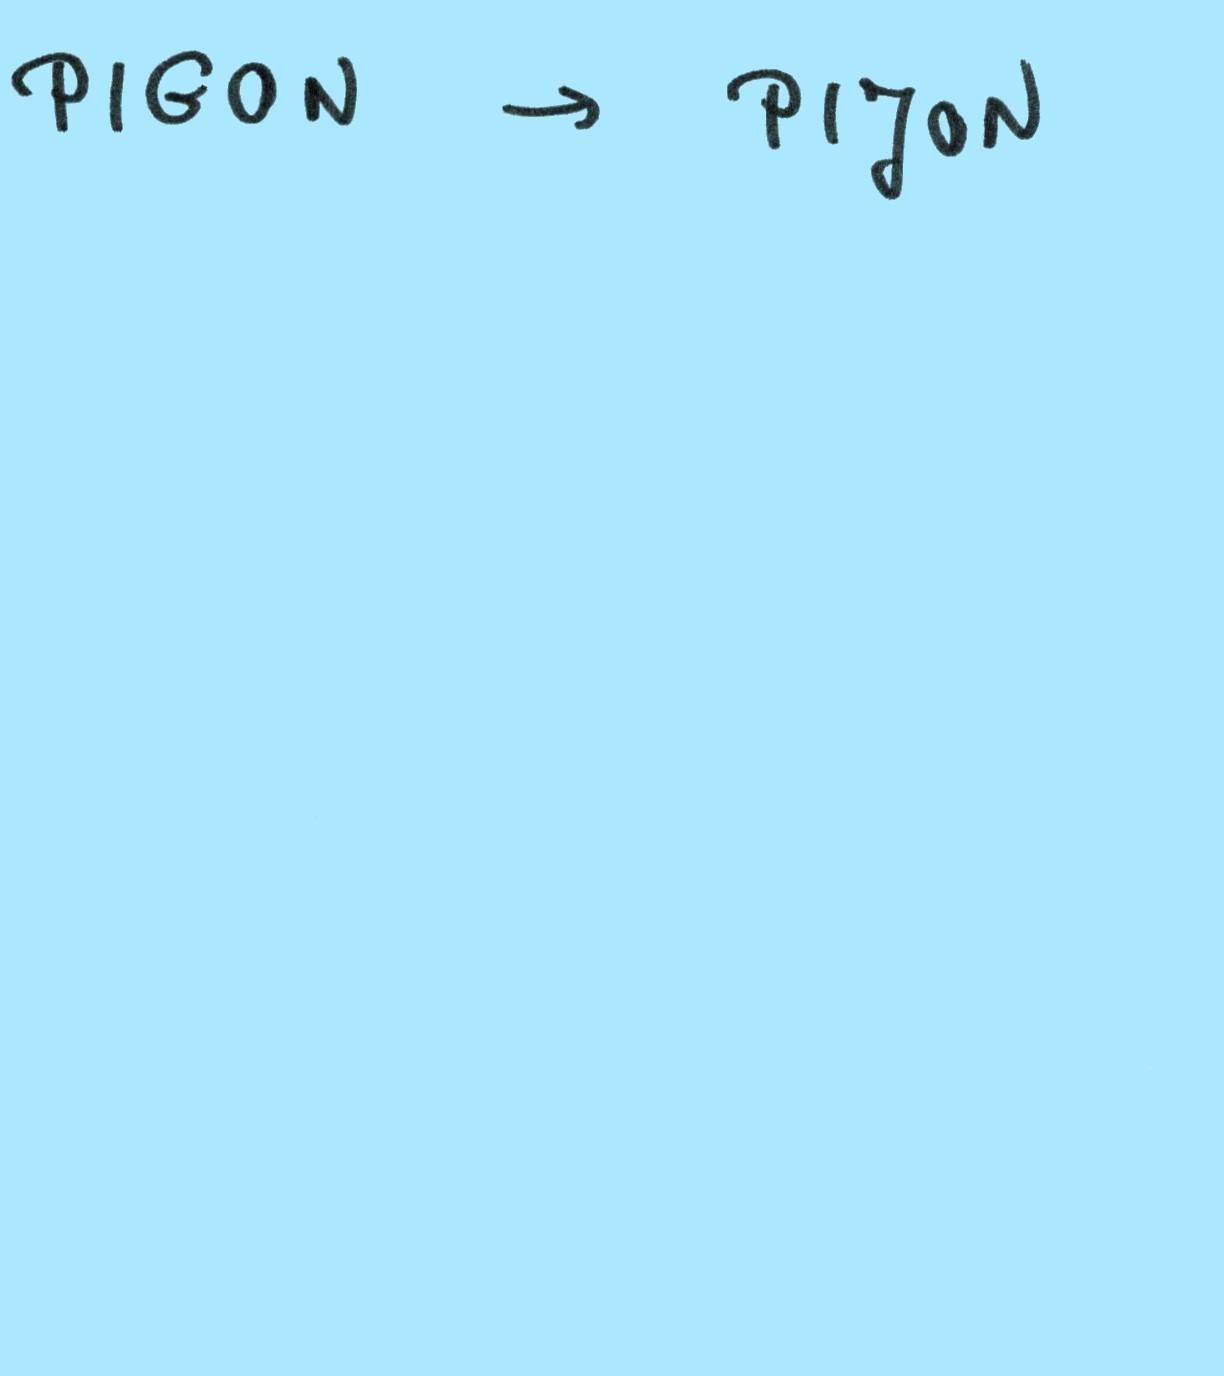 PIGON → PIJON